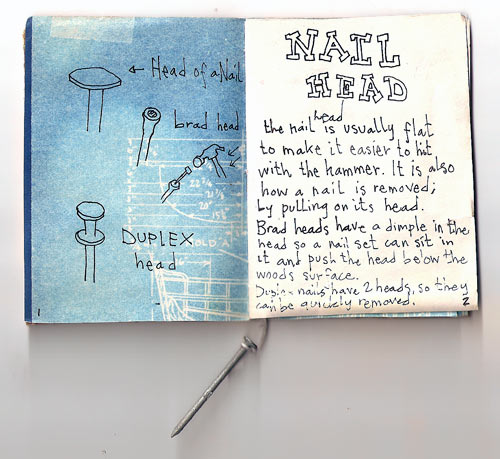 ← Head of a Nail
brad head
22 ¼
21 ⅝
20"
15⅝
HOLD A
DUPLEX
head
1
NAIL
HEAD
head
the nail is usually flat
to make it easier to hit
with the hammer. It is also
how a nail is removed;
by pulling on its head.
Brad heads have a dimple in the
head so a nail set can sit in
it and push the head below the
woods surface.
nails have 2 heads, so they
can be quickly removed.
2